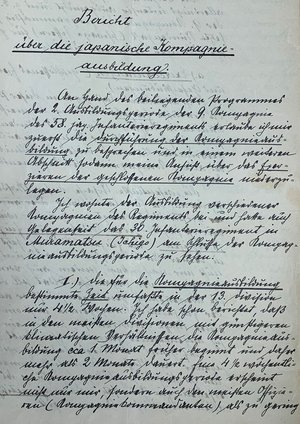 Bericht
über die japanische Kompagnie-
ausbildung.
An Hand des beiliegenden Programmes
der 2. Ausbildungsperiode der 9. Kompagnie
des 58. jap. Infanterieregiments erlaube ich mir
zuerst die Durchführung der Kompagnieaus-
bildung zu besprechen und in einem zweiten
Abschnitt sodann meine Ansicht über das Exer-
zieren der geschlossenen Kompagnie niederzu-
legen.
Ich wohnte der Ausbildung verschiedener
Kompagnien des Regiments bei und hatte auch
Gelegenheit das 30. Infanterieregiment in
Muramatsu (Echigo) am Schluße der Kompag-
nieausbildungsperiode zu sehen.
I.) die für die Kompagnieausbildung
bestimmte Zeit umfaßte in der 13. Division
nur 4½ Wochen. Ich habe schon berichtet, daß
in den meisten Divisionen mit günstigeren
klimatischen Verhältnissen die Kompagnieaus-
bildung cca 1 Monat früher beginnt und daher
mehr als 2 Monate dauert. Eine 4½ wöchentli-
che Kompagnieausbildungsperiode erscheint
nicht nur mir, sondern auch den meisten Offizie-
ren (Kompagniecommandanten) als zu gering